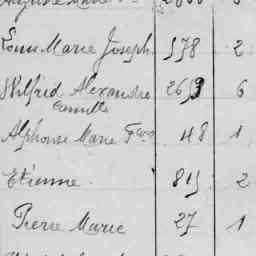 Louis Marie Joseph 578 2
Wilfrid Alexandre 2653 6
Camille
Alphonse Marie 48 1
Etienne 815 2
Pierre Marie 27 1